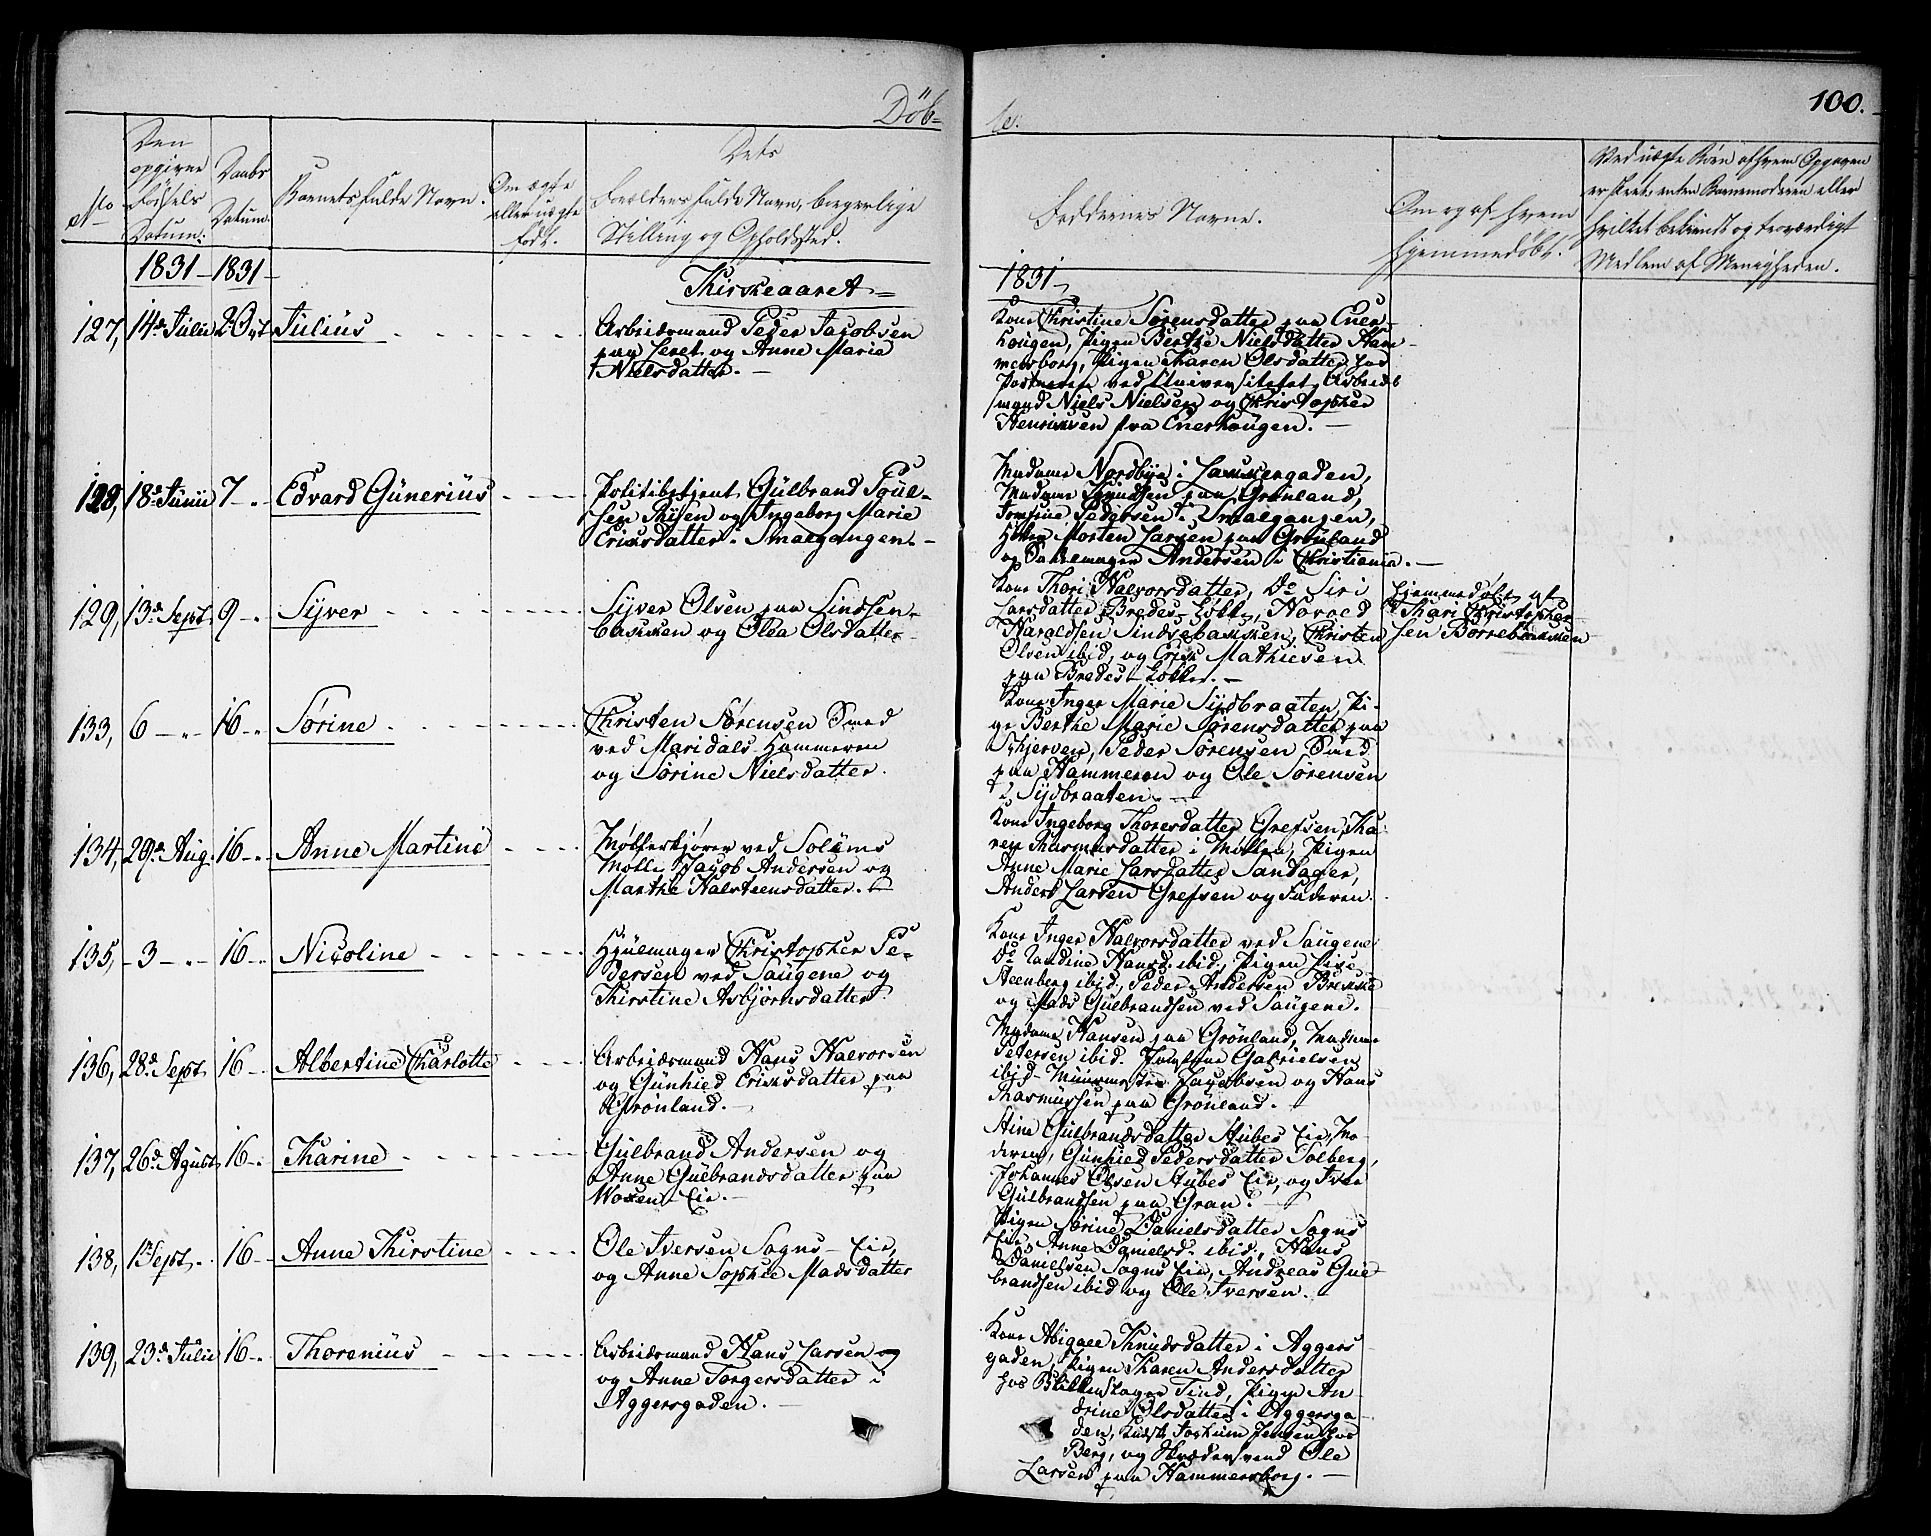 Döb-
te.
100.
No
Den opgivne Födsels Datum.
Daabs Datum.
Barnets fulde Navn.
Om ægte eller uægte født.
Dets Forældres fulde Navn, borgerlige Stilling og Opholdssted.
Faddernes Navne.
Om og af hvem hjemmedøbt.
Ved uægte Børn af hvem Opgaven er skeet, enten Barnemoderen eller hvilket bekiendt og troværdigt Medlem af Menigheden.
1831 - 1831 -
Kirkeaaret
1831
127, 14de Julii 2 Oct Julius
Arbeidsmand Peder Jacobsen
paa Leret og Anne Marie
Nielsdatter. -
Kone Christine Sørensdatter paa Ener-
hougen, Pigen Berthe Nielsdatter Ham-
mersborg, Pigen Karen Olsdatter hos
ved Universitetet, Arbeids
mand Niels Nielsen og Christopher
Henriksen fra Enerhougen. -
128, 18de Junii 7 - Edvard Günerius
Politibetjent Gülbrand Poül-
sen Thisen og Ingeborg Marie
Ericksdatter i Smalgangen. -
Madame Nordbye i Lakkergaden,
Madame Knudsen paa Grønland,
Jomfrue Pedersen i Smalgangen,
Morten Larsen paa Grønland
og Andersen i Christiania. -
129, 13de Sept 9 - Syver
Syver Olsen paa Lindsen-
bakken og Olea Olsdatter -
Kone Thori Halvorsdatter, Do Siri
Larsdatter Bredes Løkke, Havold
Haraldsen Lindsebakken, Christen
Olsen ibid, og Erick Mathiesen
paa Bredes-Løkke. -
Hjemmedøbt af
Thari Christopher
sen Børrebakken
133, 6 - 16 - Sørine
Christen Sørensen Smed
ved Maridals-Hammeren
og Sørine Nielsdatter.
Kone Inger Marie Sydbraaten, Pi-
ge Berthe Marie Sørensdatter paa
Skjerven, Peder Sørensen Smed
paa Hammeren og Ole Sørensen
Sydbraaten. -
134, 29de Aug. 16 - Anne Martine
Møllerkjører ved Soläms
Mølle Jacob Andersen og
Marthe Halsteensdatter. -
Kone Ingeborg Thoresdatter Grefsen, Ka-
ren Rasmusdatter i Møllen, Pigen
Anne Marie Larsdatter Sandager,
Anders Larsen Grefsen og Faderen.
135, - 3 - 16 - Nicoline
Hjulmager Christopher Pe-
dersen ved Saugene og
Kirstine Asbjørnsdatter.
Kone Inger Halvorsdatter ved Saugene
Do Randine Hansd. ibid, Pigen Lise
Steenberg ibid, Peder Andersen Brekke
og Mads Gülbrandsen ved Saugene.
136, 28de Sept. 16 - Albertine Charlotte
Arbeidsmand Hans Halvorsen
og Günhild Ericksdatter paa
Grønland. -
Madame Hansen paa Grønland, Madame
Petersen ibid. Jomfrue Gabrielsen
ibid - Jacobsen og Hans
Rasmussen paa Grønland. -
137, 26de Agust 16 - Karine
Gülbrand Andersen og
Anne Gülbrandsdatter paa
Woxen-Eie. -
Stine Gülbrandsdatter Stubes Eie, Mo-
deren, Günhild Pedersdatter Solberg,
Johannes Olsen Stubes Eie, og Iver
Gülbrandsen paa Gran.
138, 1 Sept. 16 - Anne Kirstine
Ole Iversen Sogns-Eie,
og Anne Sophie Madsdatter
Pigen Sørine Danielsdatter Sogns
Eie, Anne Danielsd. ibid, Hans
Danielsen Sogns Eie, Andreas Gul-
brandsen ibid og Ole Iversen.
139, 23de Julii 16 - Thorenius
Arbeidsmand Hans Larsen og
og Anne Torgersdatter i
Aggersgaden. -
Kone Abigael Knudsdatter i Aggers
gaden, Pigen Karen Andersdatter
hos Blikkenslager Lind, Pigen An-
drine Olsdatter i Aggersga-
den, Kudsk Jochum Jensen hos
Berg, og Skrædersvend Ole
Larsen paa Hammersborg. -